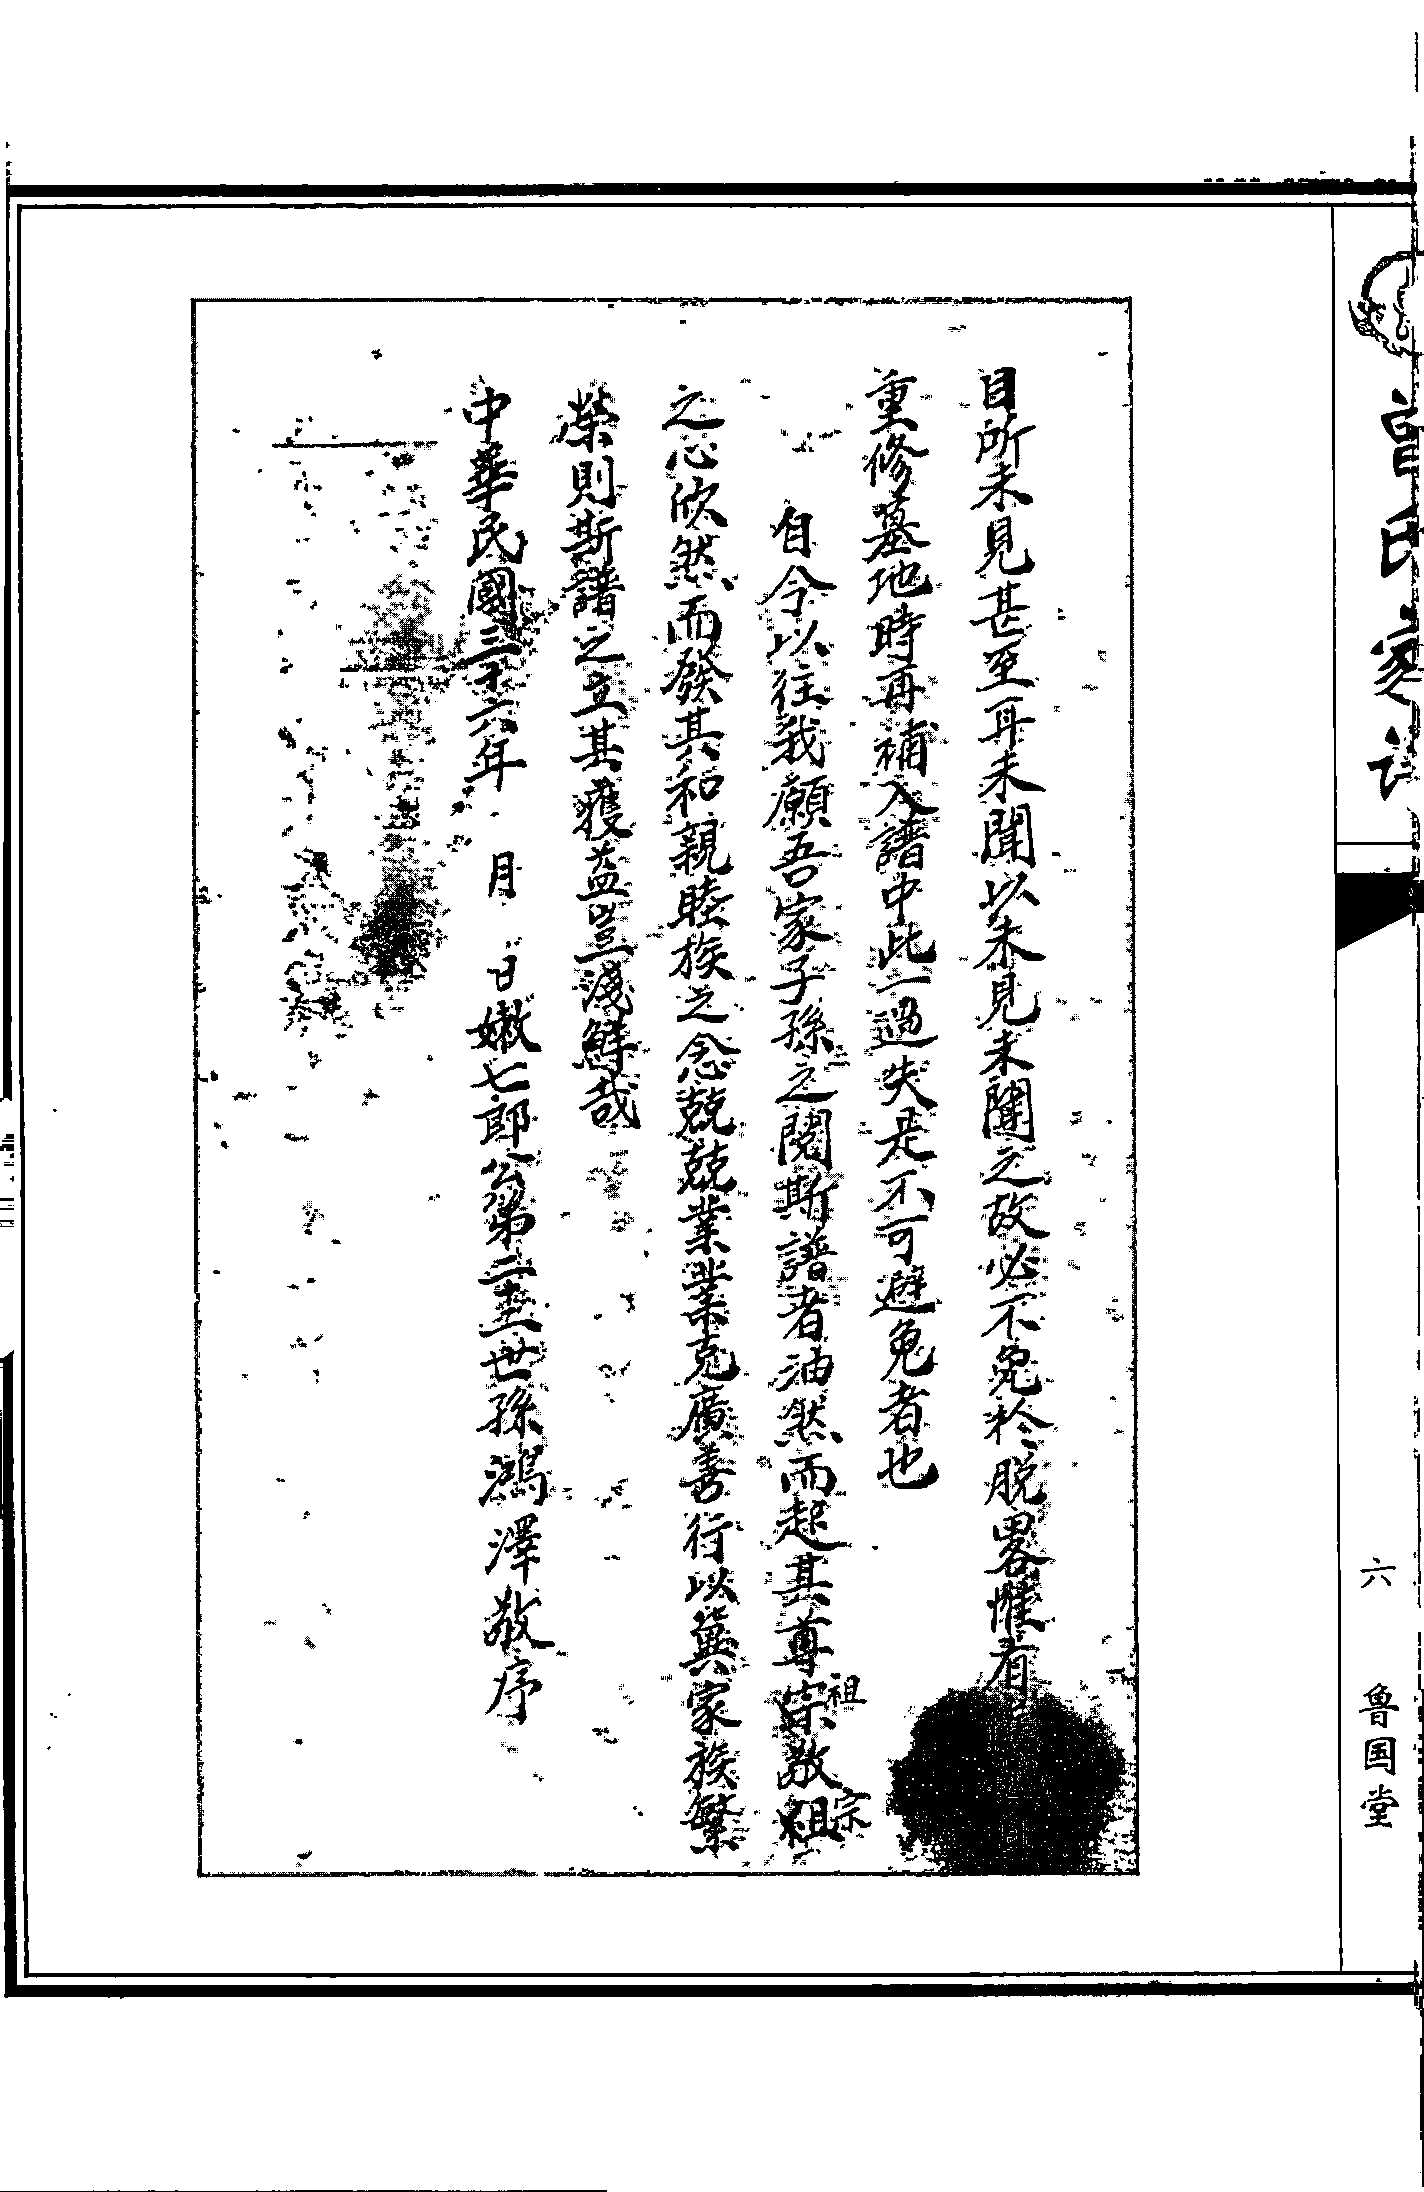 曾氏家谱
六 鲁国堂
目所未見甚至耳未聞以未見未聞之故必不免於脱畧惟有
重修墓地時再補入譜中此一過失是不可避免者也
自今以往我願吾家子孫之閱斯譜者油然而起其尊宗敬祖
祖
宗
之心欣然而發其和親睦族之念兢兢業業克廣善行以冀家族繁
榮則斯譜之立其獲益豈淺鮮哉
中華民國三十六年 月 日嫩七郎公第二十五世孫鴻澤敬序